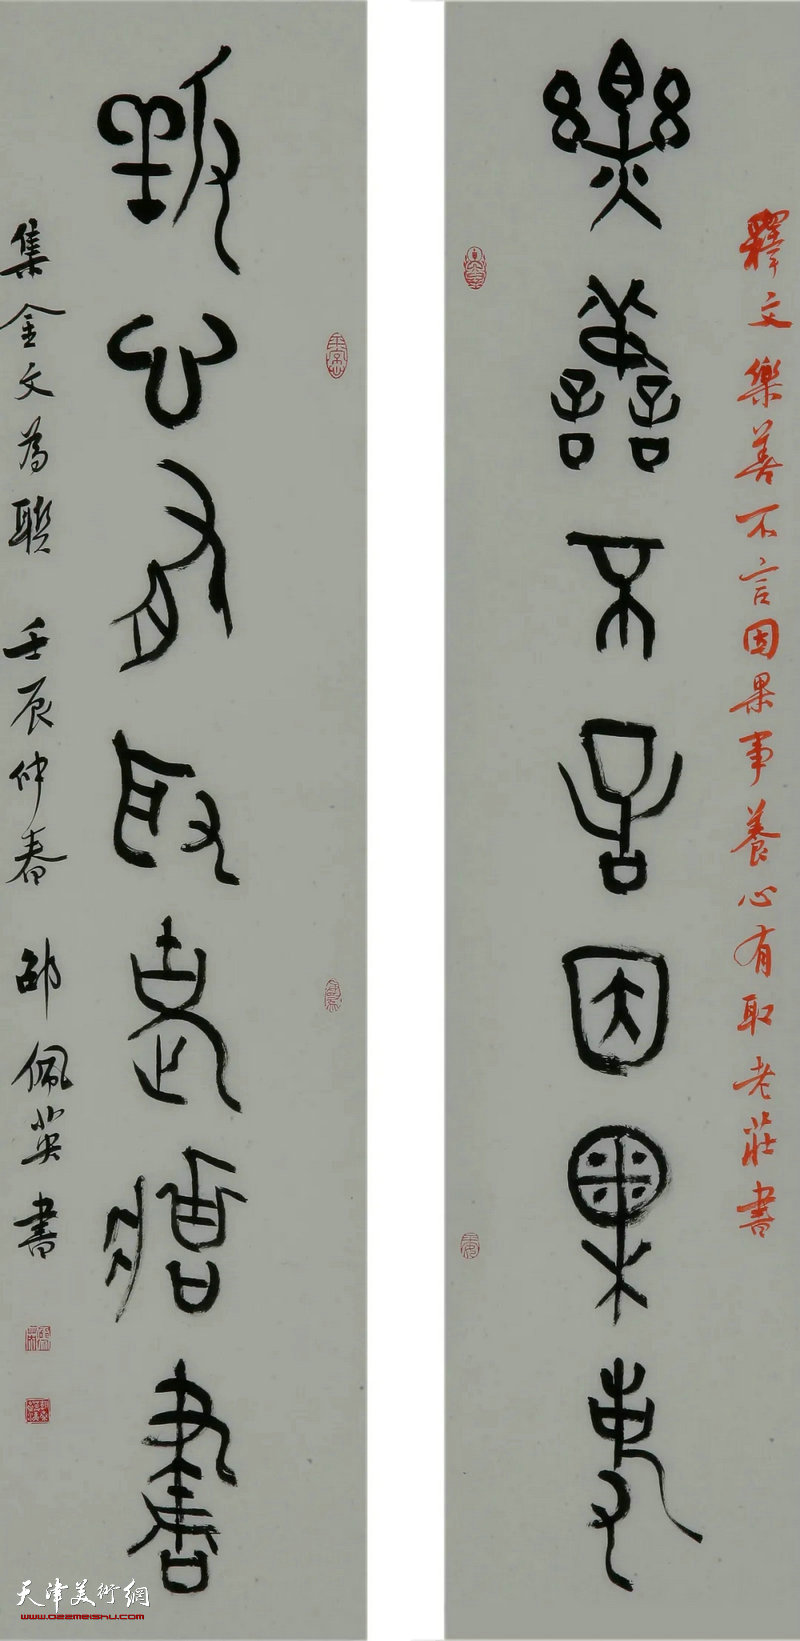 釋文 樂善不言因果事養心有取老莊書
樂善不言因果事
養心有取老莊書
集金文為聯 壬辰仲春 邵佩英書
天津美術網